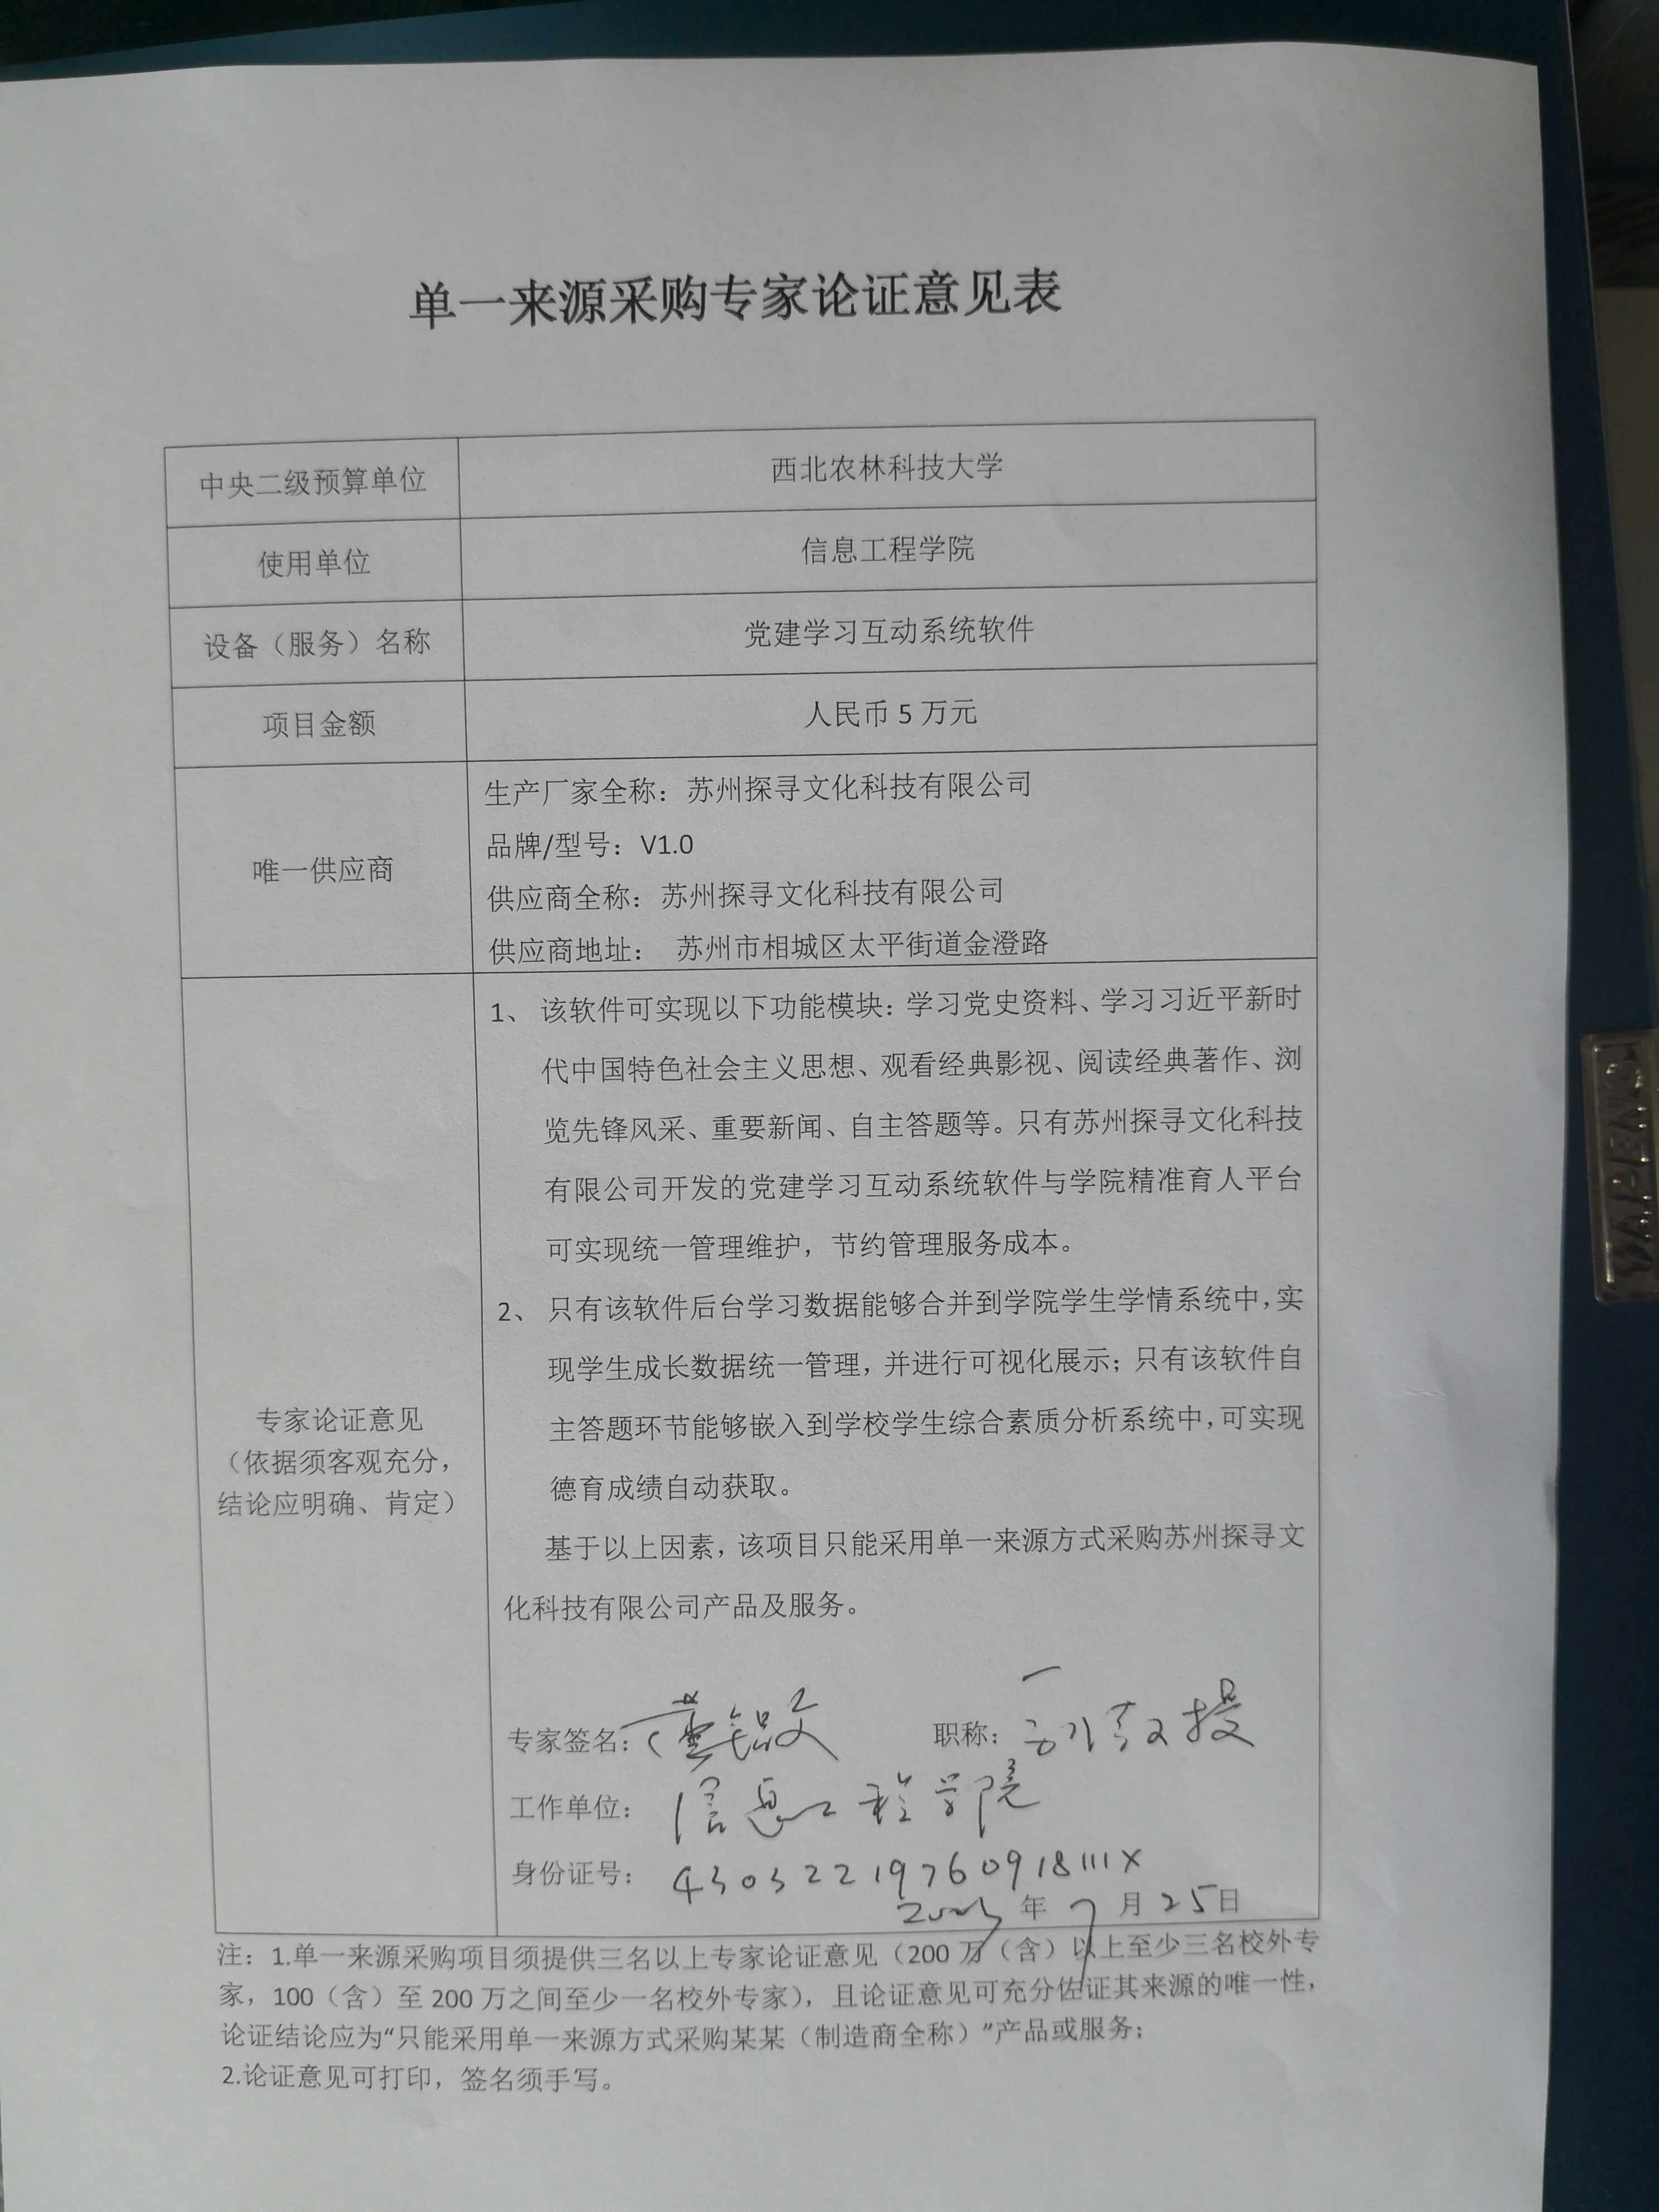 单一来源采购专家论证意见表
中央二级预算单位
西北农林科技大学
使用单位
信息工程学院
设备（服务）名称
党建学习互动系统软件
项目金额
人民币 5 万元
唯一供应商
生产厂家全称：苏州探寻文化科技有限公司
品牌/型号：V1.0
供应商全称：苏州探寻文化科技有限公司
供应商地址： 苏州市相城区太平街道金澄路
专家论证意见
（依据须客观充分，
结论应明确、肯定）
1、 该软件可实现以下功能模块：学习党史资料、学习习近平新时
代中国特色社会主义思想、观看经典影视、阅读经典著作、浏
览先锋风采、重要新闻、自主答题等。只有苏州探寻文化科技
有限公司开发的党建学习互动系统软件与学院精准育人平台
可实现统一管理维护，节约管理服务成本。
2、 只有该软件后台学习数据能够合并到学院学生学情系统中，实
现学生成长数据统一管理，并进行可视化展示；只有该软件自
主答题环节能够嵌入到学校学生综合素质分析系统中，可实现
德育成绩自动获取。
基于以上因素，该项目只能采用单一来源方式采购苏州探寻文
化科技有限公司产品及服务。
专家签名： 职称：副教授
工作单位：信息工程学院
身份证号：43032219760918111X
年 7 月 25 日
注：1.单一来源采购项目须提供三名以上专家论证意见（200 万（含）以上至少三名校外专
家，100（含）至 200 万之间至少一名校外专家），且论证意见可充分佐证其来源的唯一性，
论证结论应为“只能采用单一来源方式采购某某（制造商全称）”产品或服务；
2.论证意见可打印，签名须手写。